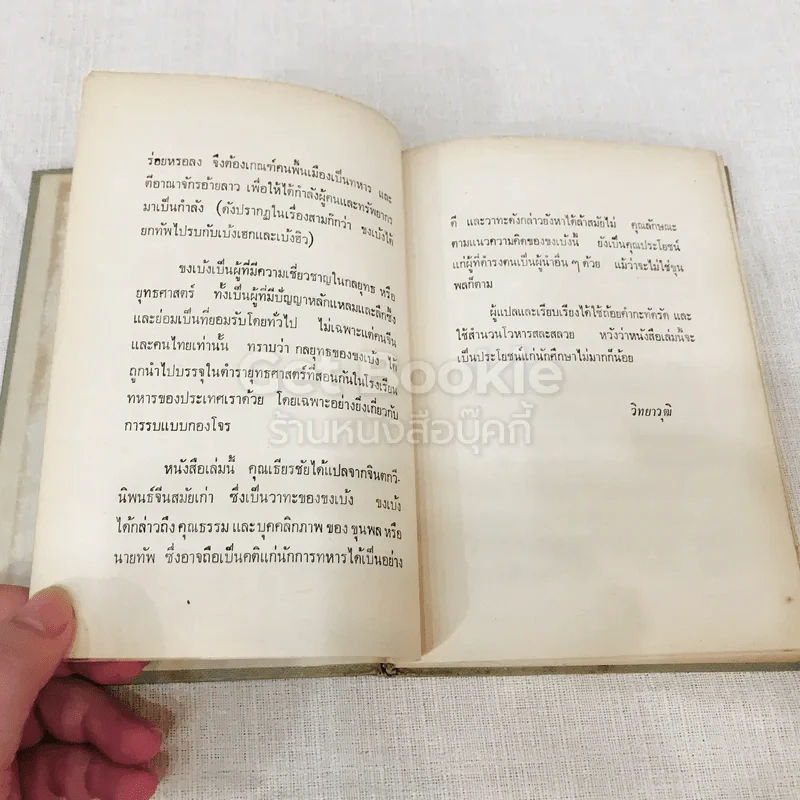 ร่อยหรอลง จึงต้องเกณฑ์คนพื้นเมืองเป็นทหาร และ
ตีอาณาจักรอ้ายลาว เพื่อให้ได้กำลังผู้คนและทรัพยากร
มาเป็นกำลัง (ดังปรากฏในเรื่องสามก๊กว่า ขงเบ้งได้
ยกทัพไปรบกับเบ้งเฮกและเบ้งฮิว)
ขงเบ้งเป็นผู้ที่มีความเชี่ยวชาญในกลยุทธ หรือ
ยุทธศาสตร์ ทั้งเป็นผู้ที่มีปัญญาหลักแหลมและลึกซึ้ง
และย่อมเป็นที่ยอมรับโดยทั่วไป ไม่เฉพาะแต่คนจีน
และคนไทยเท่านั้น ทราบว่า กลยุทธของขงเบ้ง ได้
ถูกนำไปบรรจุในตำรายุทธศาสตร์ที่สอนกันในโรงเรียน
ทหารของประเทศเราด้วย โดยเฉพาะอย่างยิ่งเกี่ยวกับ
การรบแบบกองโจร
หนังสือเล่มนี้ คุณเธียรชัยได้แปลจากจินตกวี-
นิพนธ์จีนสมัยเก่า ซึ่งเป็นวาทะของขงเบ้ง ขงเบ้ง
ได้กล่าวถึง คุณธรรม และ บุคคลิกภาพ ของ ขุนพล หรือ
นายทัพ ซึ่งอาจถือเป็นคติแก่นักการทหารได้เป็นอย่าง
ดี และวาทะดังกล่าวยังหาได้ล้าสมัยไม่ คุณลักษณะ
ตามแนวความคิดของขงเบ้งนี้ ยังเป็นคุณประโยชน์
แก่ผู้ที่ดำรงตนเป็นผู้นำอื่น ๆ ด้วย แม้ว่าจะไม่ใช่ขุน
พลก็ตาม
ผู้แปลและเรียบเรียงได้ใช้ถ้อยคำกะทัดรัด และ
ใช้สำนวนโวหารสละสลวย หวังว่าหนังสือเล่มนี้จะ
เป็นประโยชน์แก่นักศึกษาไม่มากก็น้อย
วิทยาวุฒิ
Get Bookie
ร้านหนังสือบุ๊คกี้